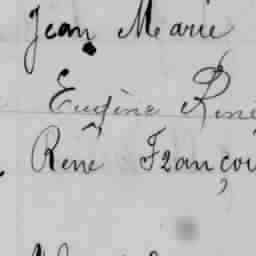 Jean Marie
Eugène René
René Françoi